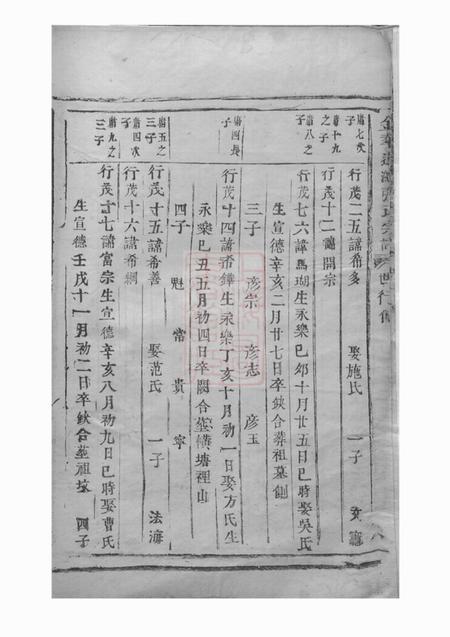 行茂二五諱希多 娶施氏 一子
茂十九之子
行茂十二 開宗
茂八之子
行茂七六諱馬瑚生永樂己卯十月廿五日巳時娶吳氏
生宣德辛亥二月廿七日卒缺合葬祖墓側
三子 彥宗 彥志 彥玉
行茂十四諱希鏵生永樂丁亥十月初一日娶方氏生
永樂己丑五月初四日卒闕合葬 塘裡山
四子 魁 常 貴 寧
五之三子
行茂十五諱希善 娶范氏 一子 法海
四次子
行茂十六諱希綱
九之三子
行茂十七諱富宗生宣德辛亥八月初九日巳時娶曹氏
生宣德壬戌十一月初二日卒缺合墓祖墳 四子